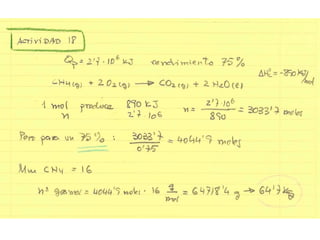 ACTIVIDAD 18
Qp = 2'7·10⁶ kJ rendimiento 75%
CH₄(g) + 2O₂(g) → CO₂(g) + 2H₂O(l) ΔH = -890 kJ/mol
1 mol produce 890 kJ n = 2'7 10⁶ / 890 = 3033'7 moles
n 2'7 10⁶
Pero para un 75% : 3033'7 / 0'75 = 4044'9 moles
Mm CH₄ = 16
nº gramos = 4044'9 moles · 16 g/mol = 64718'4 g → 64'7 kg